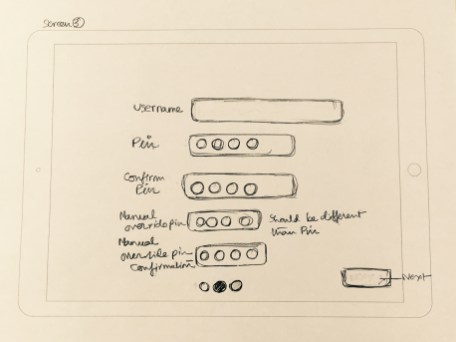 Screen 3
Username
Pin
Confirm
Pin
Manual
override pin
Should be different
than Pin
Manual
override pin
Confirmation
Next